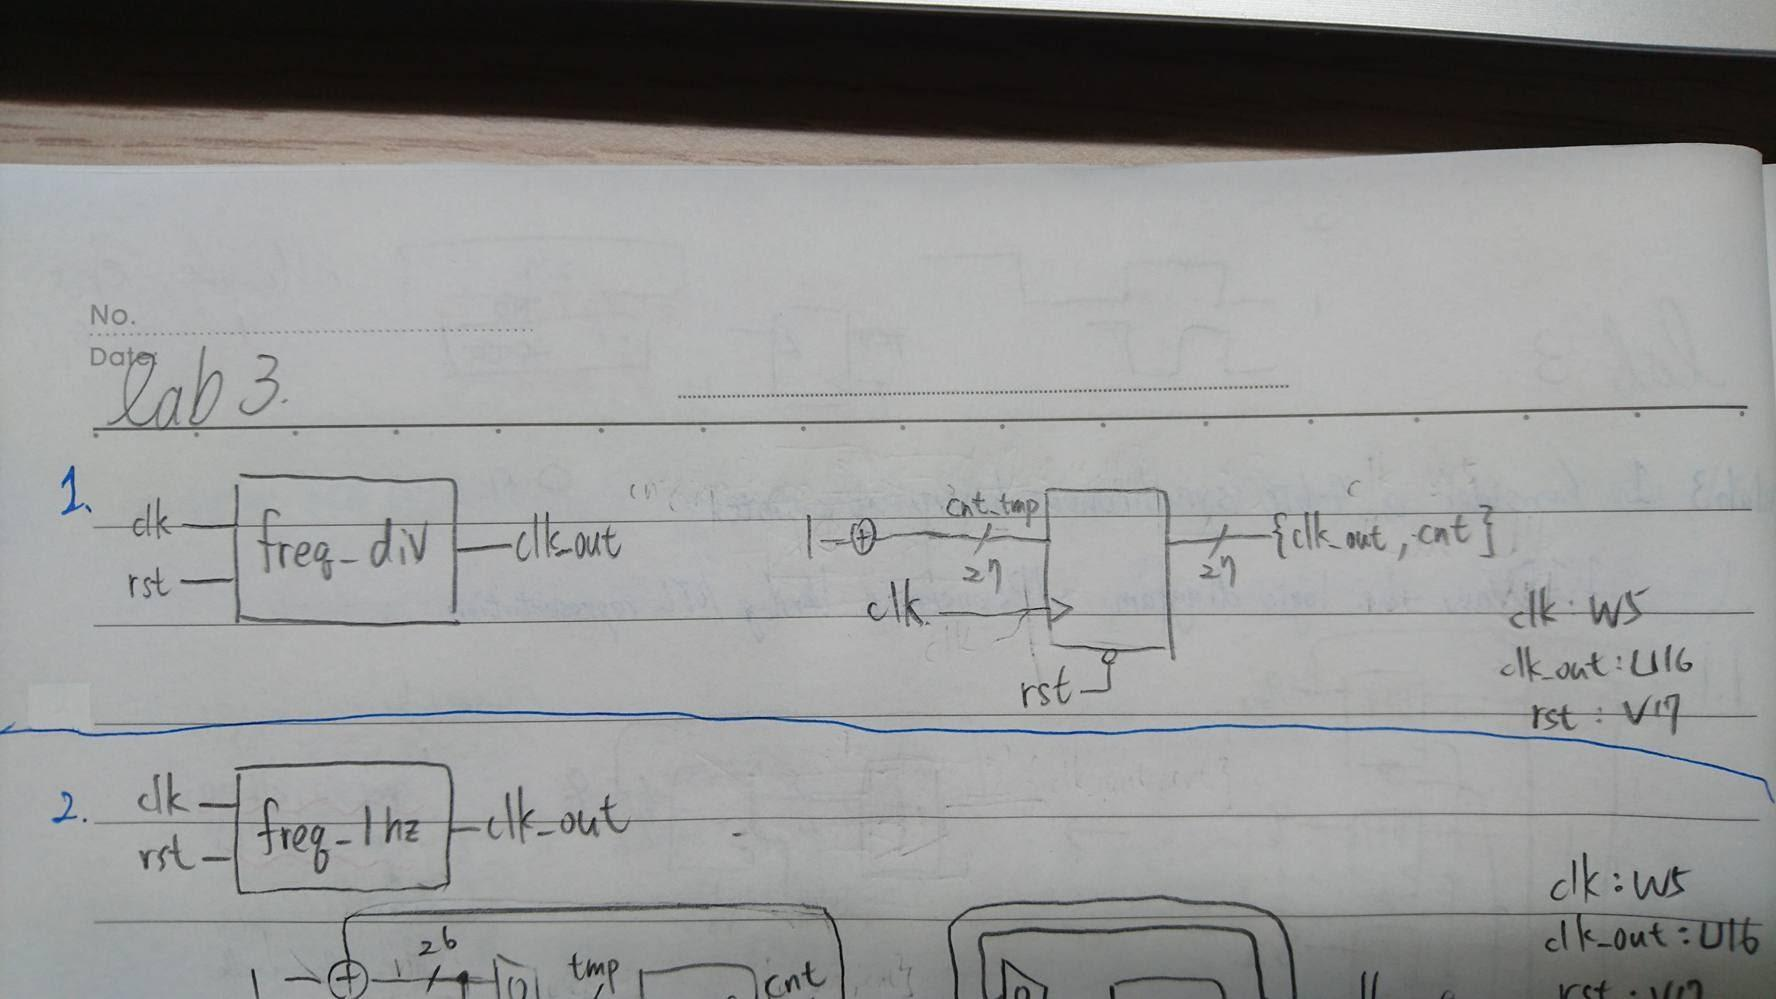 No.
Date:
lab 3.
1.
clk
rst
freq_div
clk_out
1
+
cnt_tmp
27
clk
rst
27
{clk_out, cnt}
clk: W5
clk_out: U16
rst: V17
2.
clk
rst
freq_1hz
clk_out
clk: W5
clk_out: U16
rst: V17
1
+
26
0
tmp
cnt
0